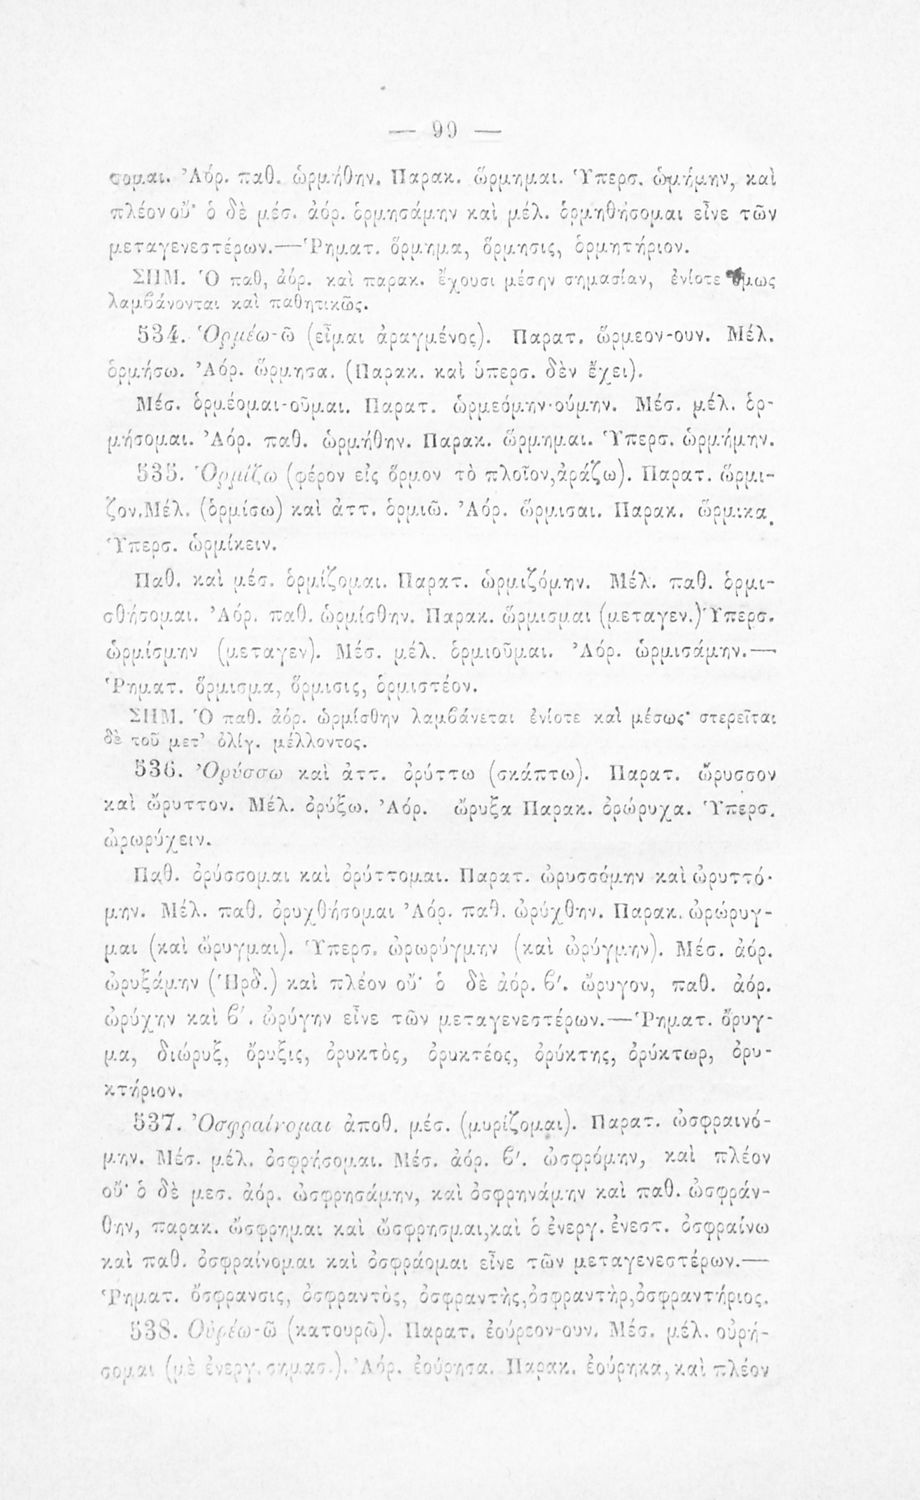 — 99 —
σομαι. Ἀόρ. παθ. ὡρμήθην. Παρακ. ὥρμημαι. Ὑπερσ. ὡμήμην, καὶ
πλέον οὔ· ὁ δὲ μέσ. ἀόρ. ὁρμησάμην καὶ μέλ. ὁρμηθήσομαι εἶνε τῶν
μεταγενεστέρων.—Ῥηματ. ὅρμημα, ὅρμησις, ὁρμητήριον.
ΣΗΜ. Ὁ παθ, ἀόρ. καὶ παρακ. ἔχουσι μέσην σημασίαν, ἐνίοτε ὅμως
λαμβάνονται καὶ παθητικῶς.
534. Ὁρμέω-ῶ (εἶμαι ἀραγμένος). Παρατ. ὥρμεον-ουν. Μέλ.
ὁρμήσω. Ἀόρ. ὥρμησα. (Παρακ. καὶ ὑπερσ. δὲν ἔχει).
Μέσ. ὁρμέομαι-οῦμαι. Παρατ. ὡρμεόμην-ούμην. Μέσ. μέλ. ὁρ-
μήσομαι. Ἀόρ. παθ. ὡρμήθην. Παρακ. ὥρμημαι. Ὑπερσ. ὡρμήμην.
535. Ὁρμίζω (φέρον εἰς ὅρμον τὸ πλοῖον,ἀράζω). Παρατ. ὥρμι-
ζον.Μέλ. (ὁρμίσω) καὶ ἀττ. ὁρμιῶ. Ἀόρ. ὥρμισαι. Παρακ. ὥρμικα.
Ὑπερσ. ὡρμίκειν.
Παθ. καὶ μέσ. ὁρμίζομαι. Παρατ. ὡρμιζόμην. Μέλ. παθ. ὁρμι-
σθήσομαι. Ἀόρ. παθ. ὡρμίσθην. Παρακ. ὥρμισμαι (μεταγεν.) Ὑπερσ.
ὡρμίσμην (μεταγεν). Μέσ. μέλ. ὁρμιοῦμαι. Ἀόρ. ὡρμισάμην.—
Ῥηματ. ὅρμισμα, ὅρμισις, ὁρμιστέον.
ΣΗΜ. Ὁ παθ. ἀόρ. ὡρμίσθην λαμβάνεται ἐνίοτε καὶ μέσως· στερεῖται
δὲ τοῦ μετ’ ὀλίγ. μέλλοντος.
536. Ὀρύσσω καὶ ἀττ. ὀρύττω (σκάπτω). Παρατ. ὤρυσσον
καὶ ὤρυττον. Μέλ. ὀρύξω. Ἀόρ. ὤρυξα Παρακ. ὀρώρυχα. Ὑπερσ.
ὠρωρύχειν.
Παθ. ὀρύσσομαι καὶ ὀρύττομαι. Παρατ. ὠρυσσόμην καὶ ὠρυττό-
μην. Μέλ. παθ. ὀρυχθήσομαι Ἀόρ. παθ. ὠρύχθην. Παρακ. ὠρώρυγ-
μαι (καὶ ὤρυγμαι). Ὑπερσ. ὠρωρύγμην (καὶ ὠρύγμην). Μέσ. ἀόρ.
ὠρυξάμην (Ἡρδ.) καὶ πλέον οὔ· ὁ δὲ ἀόρ. β′. ὤρυγον, παθ. ἀόρ.
ὠρύχην καὶ β′. ὠρύγην εἶνε τῶν μεταγενεστέρων.—Ῥηματ. ὄρυγ-
μα, διώρυξ, ὄρυξις, ὀρυκτὸς, ὀρυκτέος, ὀρύκτης, ὀρύκτωρ, ὀρυ-
κτήριον.
537. Ὀσφραίνομαι ἀποθ. μέσ. (μυρίζομαι). Παρατ. ὠσφραινό-
μην. Μέσ. μέλ. ὀσφρήσομαι. Μέσ. ἀόρ. β′. ὠσφρόμην, καὶ πλέον
οὔ· ὁ δὲ μεσ. ἀόρ. ὠσφρησάμην, καὶ ὀσφρηνάμην καὶ παθ. ὠσφράν-
θην, παρακ. ὤσφρημαι καὶ ὤσφρησμαι,καὶ ὁ ἐνεργ. ἐνεστ. ὀσφραίνω
καὶ παθ. ὀσφραίνομαι καὶ ὀσφράομαι εἶνε τῶν μεταγενεστέρων.—
Ῥηματ. ὄσφρανσις, ὀσφραντὸς, ὀσφραντὴς,ὀσφραντὴρ,ὀσφραντήριος.
538. Οὐρέω-ῶ (κατουρῶ). Παρατ. ἐούρεον-ουν. Μέσ. μέλ. οὐρή-
σομαι (μὲ ἐνεργ. σημασ.). Ἀόρ. ἐούρησα. Παρακ. ἐούρηκα,καὶ πλέον